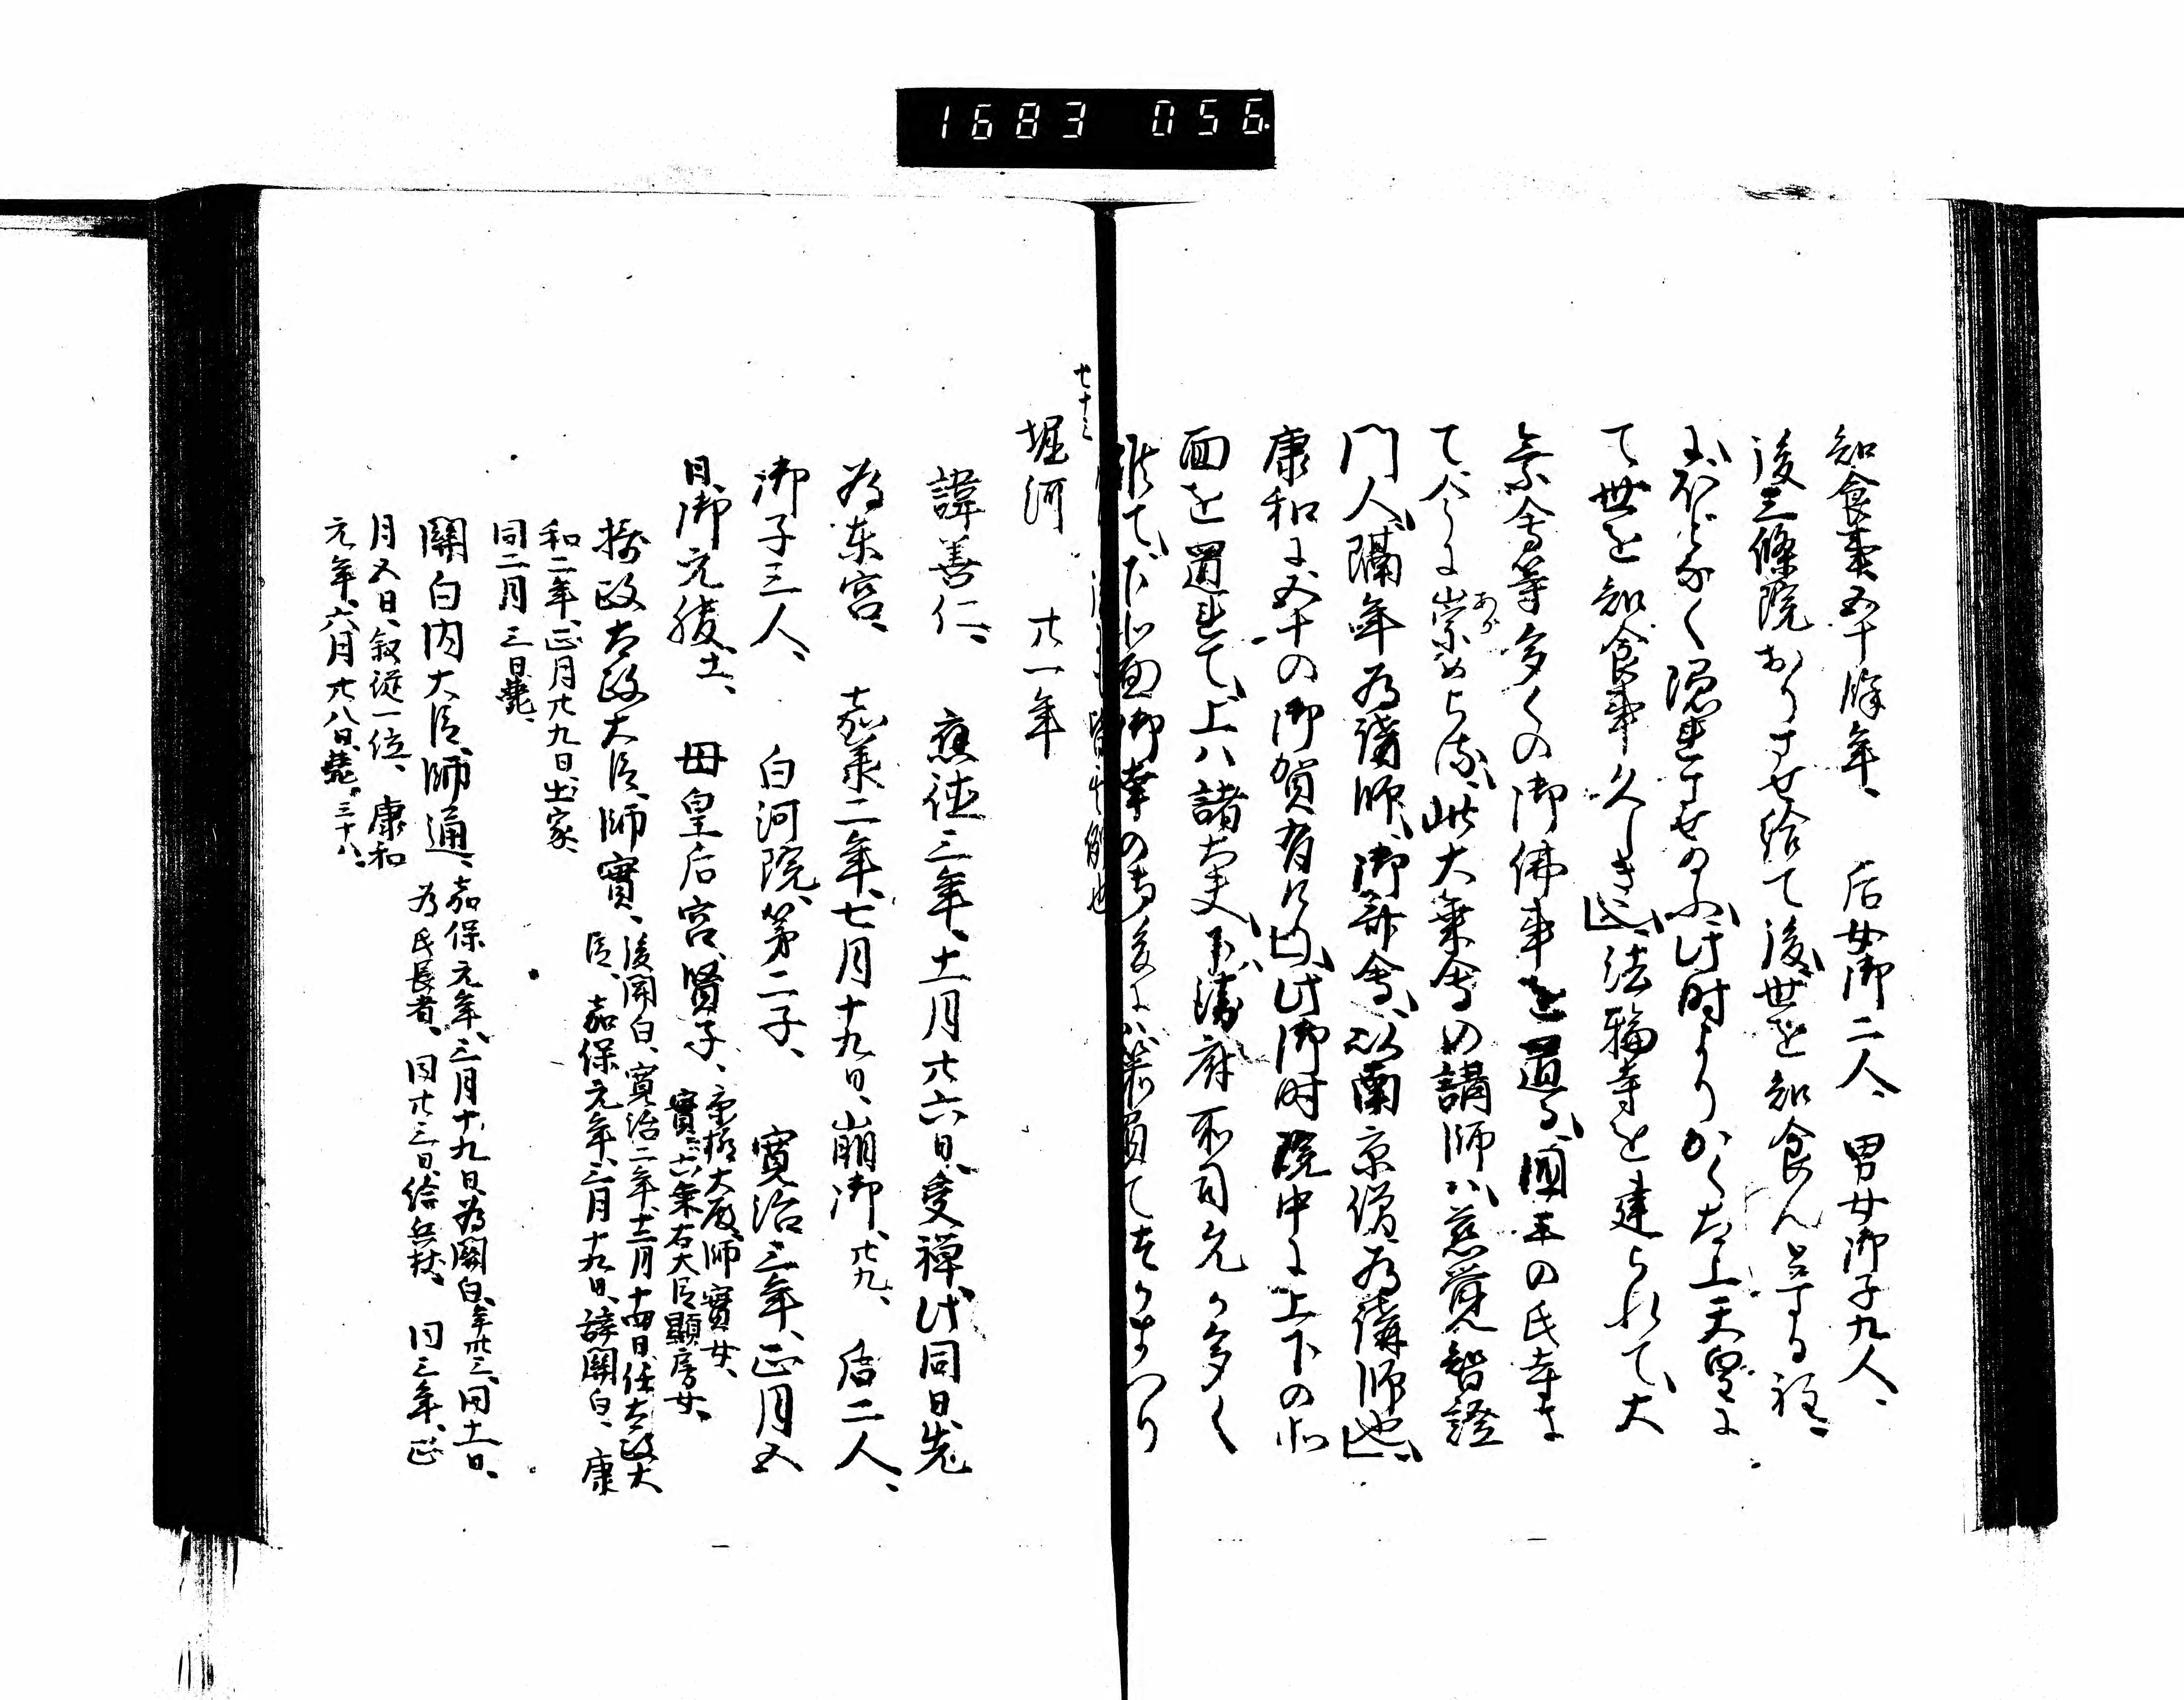 1683 056
知食事五十餘年、后女御二人、男女御子九人、
後三條院おりさせ給て後、世を知食んと
ほどなく隠れさせ給ふ、此時よりかく太上天皇に
て世を知食事久しき也、法輪寺を建られて、大
乗會等多くの御佛事を置る、國王の氏寺に
て今に崇められ、此大乗會の講師ハ慈覺智證
門人、隔年為講師、御齋會、以南京僧為講師也、
康和に五十の御賀有けり、此御時院中に上下の北
面を置れて、上ハ諸大夫、下ハ衛府所司允多く
候て、下北面御幸の時
七十三
堀河 廿一年
諱善仁、應徳三年、十一月廿六日、受禅、此同日先
為東宮、嘉承二年、七月十九日、崩御、廿九、后二人、
御子三人、白河院第二子、寛治三年、正月五
日、御元服、十一、母皇后宮、賢子、京極大殿、師實女、
實ハ六条右大臣顯房女、
攝政太政大臣、師實、後関白、寛治二年、十二月十四日、任太政大
臣、嘉保元年、三月十九日、辞關白、康
和二年、正月廿九日、出家、
同二月三日、薨、
關白内大臣、師通、嘉保元年、三月十九日、為關白、年卅三、同十一日、
為氏長者、同廿三日、給兵杖、同三年、正
月五日、叙従一位、康和
元年、六月廿八日、薨、三十八、